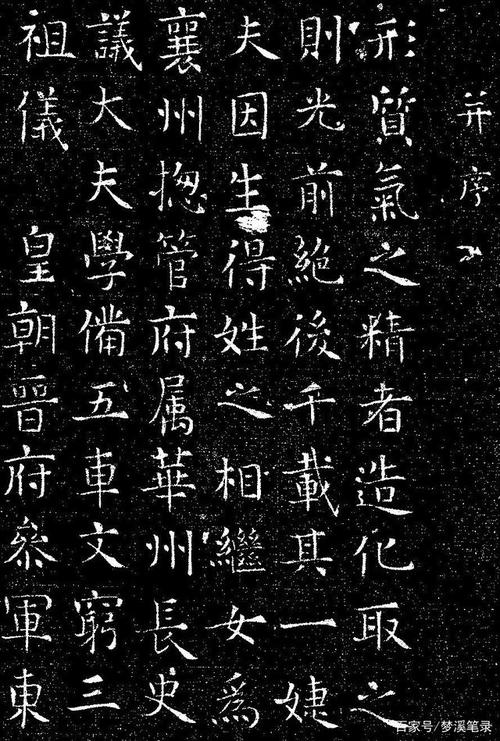 并序
形質氣之精者造化取之
則光前絕後千載其一婕
夫因生得姓之相繼女為
襄州揔管府属華州長史
議大夫學備五車文窮三
祖儀皇朝晉府叅軍東
百家号/梦溪笔录